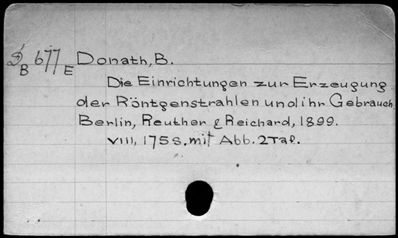 D B 677 E Donath, B.
Die Einrichtungen zur Erzeugung
der Röntgenstrahlen und ihr Gebrauch.
Berlin, Reuther & Reichard, 1899.
VIII, 175 S. mit Abb. 2 Taf.